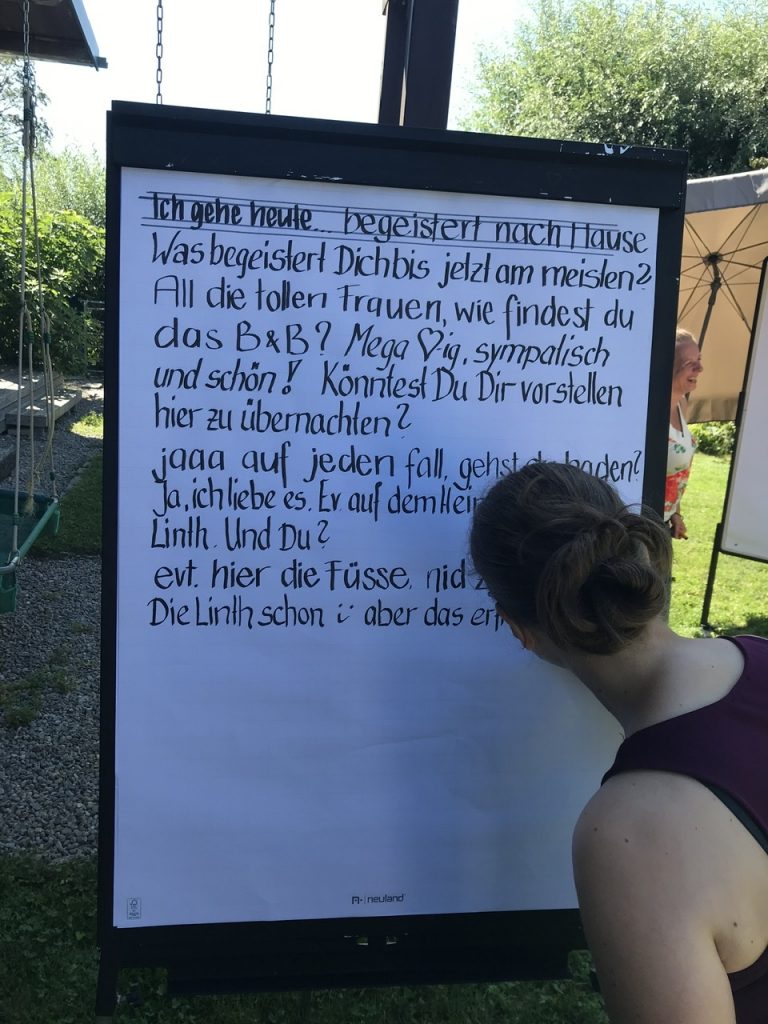 Ich gehe heute... begeistert nach Hause
Was begeistert Dich bis jetzt am meisten?
All die tollen Frauen, wie findest du
das B&B? Mega ♡-ig, sympatisch
und schön! Könntest Du Dir vorstellen
hier zu übernachten?
jaaa auf jeden fall, gehst du baden?
Ja, ich liebe es. Ev auf dem
Linth. Und Du?
evt. hier die Füsse, nid
Die Linth schon :) aber das
neuland